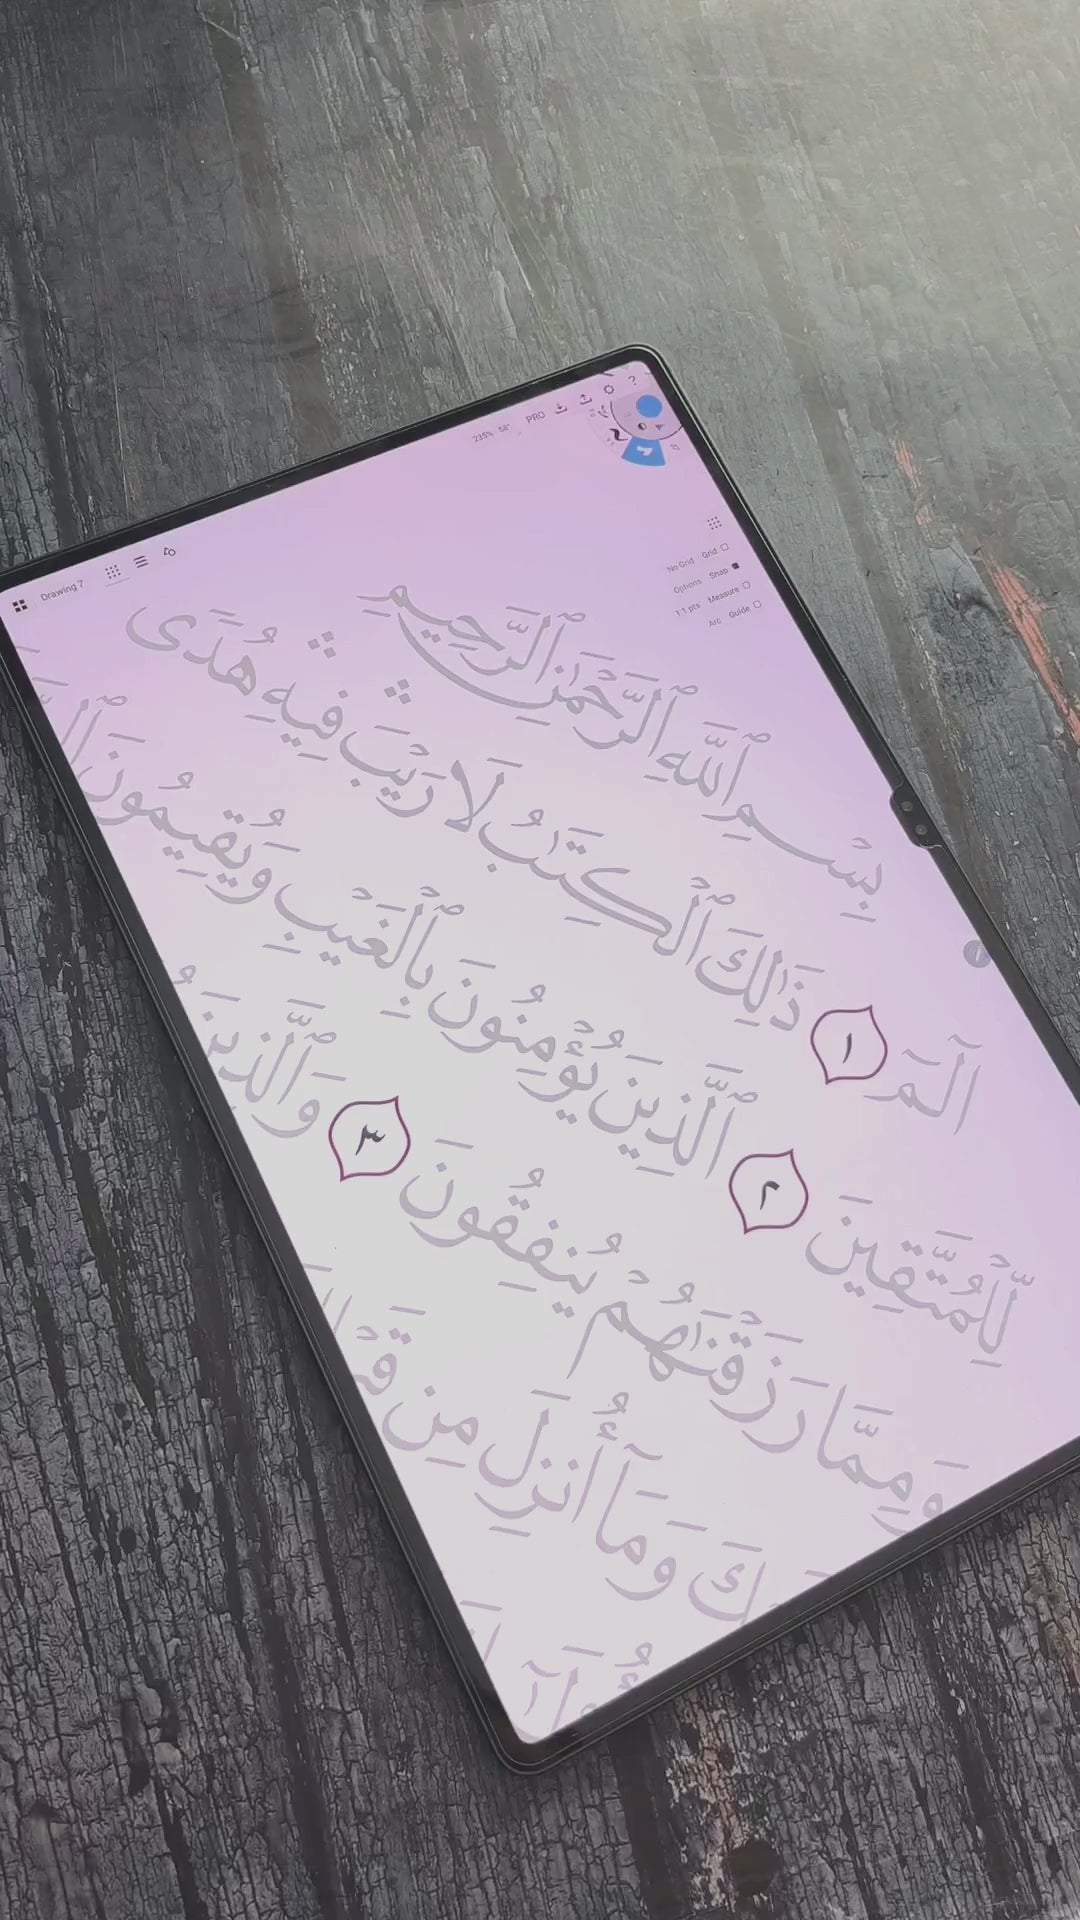 Drawing 7
235% 58° PRO ?
No Grid Grid
Options Snap
1:1 pts Measure
Arc Guide
بِسْمِ ٱللَّهِ ٱلرَّحْمَٰنِ ٱلرَّحِيمِ
الٓمٓ ١ ذَٰلِكَ ٱلْكِتَٰبُ لَا رَيْبَ ۛ فِيهِ ۛ هُدًى
لِّلْمُتَّقِينَ ٢ ٱلَّذِينَ يُؤْمِنُونَ بِٱلْغَيْبِ وَيُقِيمُونَ
وَمِمَّا رَزَقْنَٰهُمْ يُنفِقُونَ ٣ وَٱلَّذِينَ
وَمَآ أُنزِلَ مِن